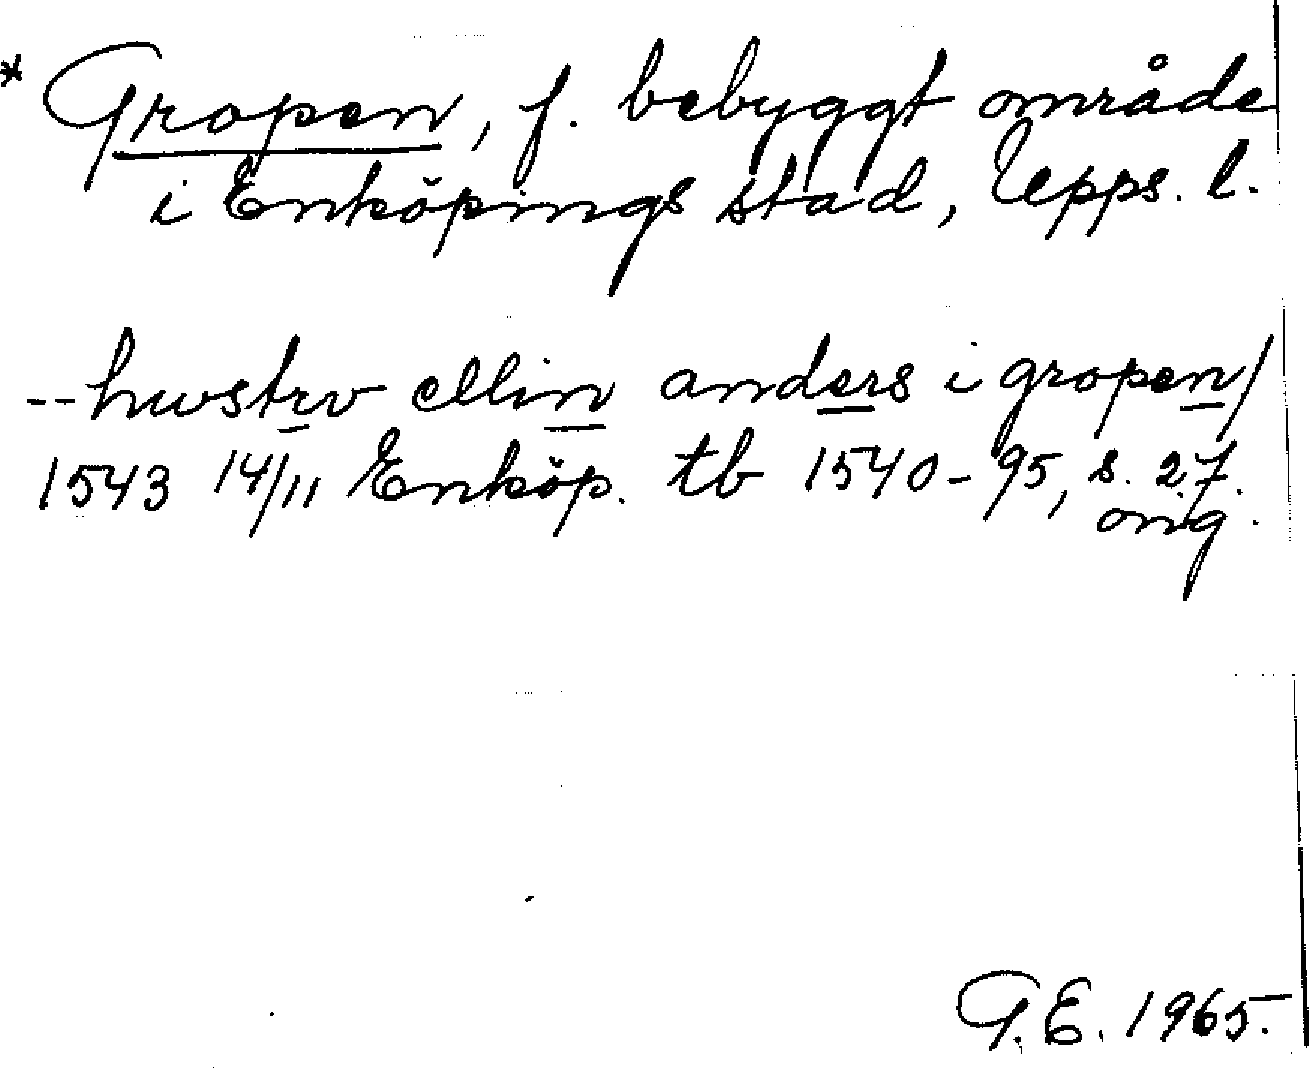 * Gropen, f. bebyggt område
i Enköpings stad, Upps. l.
-- hwstrv ellin anders i gropen/
1543 14/11 Enköp. tb 1540-95, s. 27.
orig.
G.E. 1965.